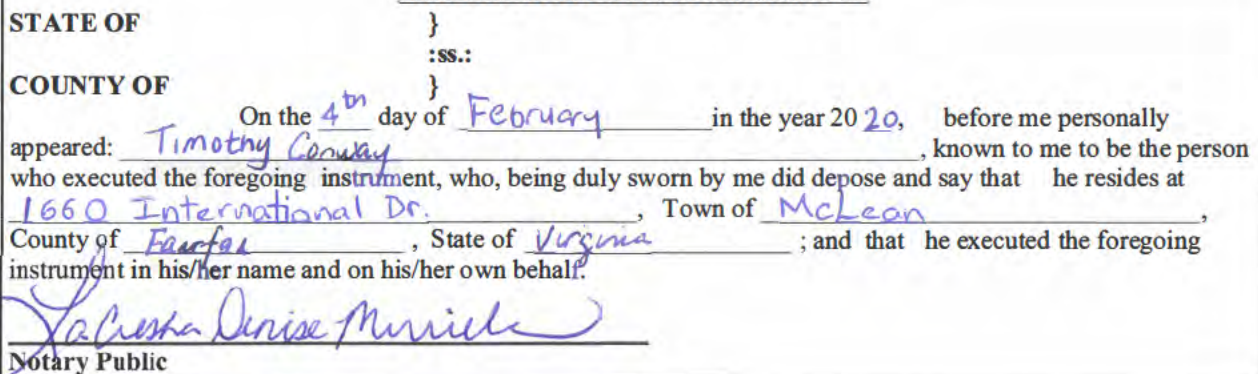 STATE OF }
:ss.:
COUNTY OF }
On the 4th day of February in the year 2020, before me personally
appeared: Timothy Conway, known to me to be the person
who executed the foregoing instrument, who, being duly sworn by me did depose and say that he resides at
1660 International Dr., Town of McLean,
County of Fairfax, State of Virginia; and that he executed the foregoing
instrument in his/her name and on his/her own behalf.
Denise
Notary Public